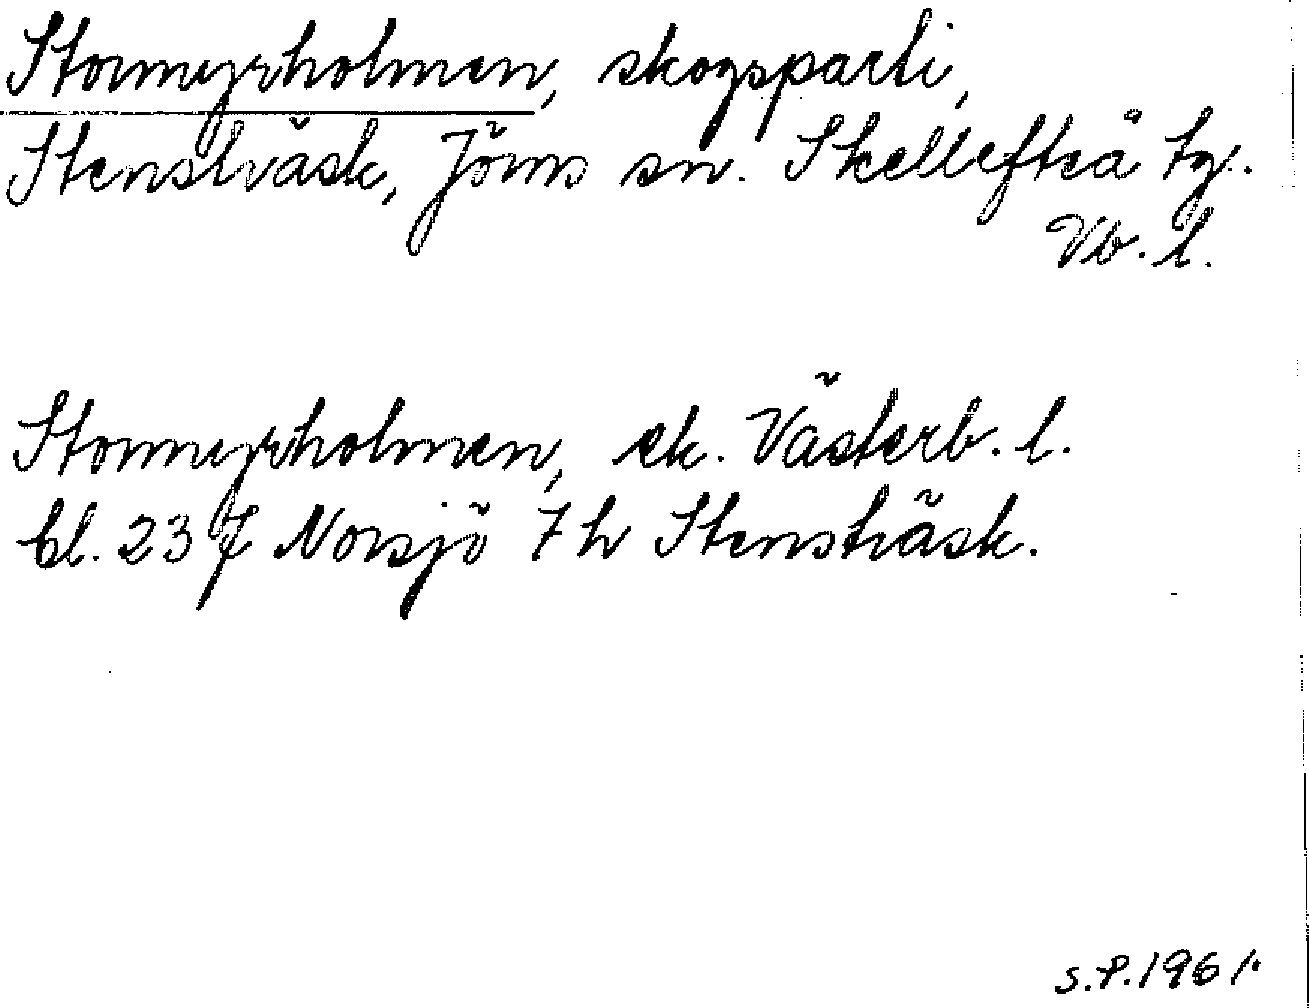 Stormyrholmen, skogsparti,
Stensträsk, Jörns sn. Skellefteå tg.
Vb. l.
Stormyrholmen, ek. Västerb. l.
bl. 23 J Norsjö 7 h Stensträsk.
S.P. 1961.